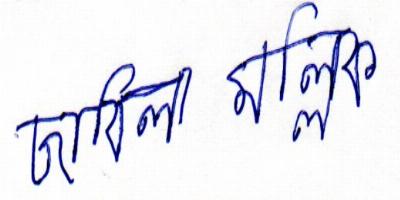 জাবিলা মল্লিক